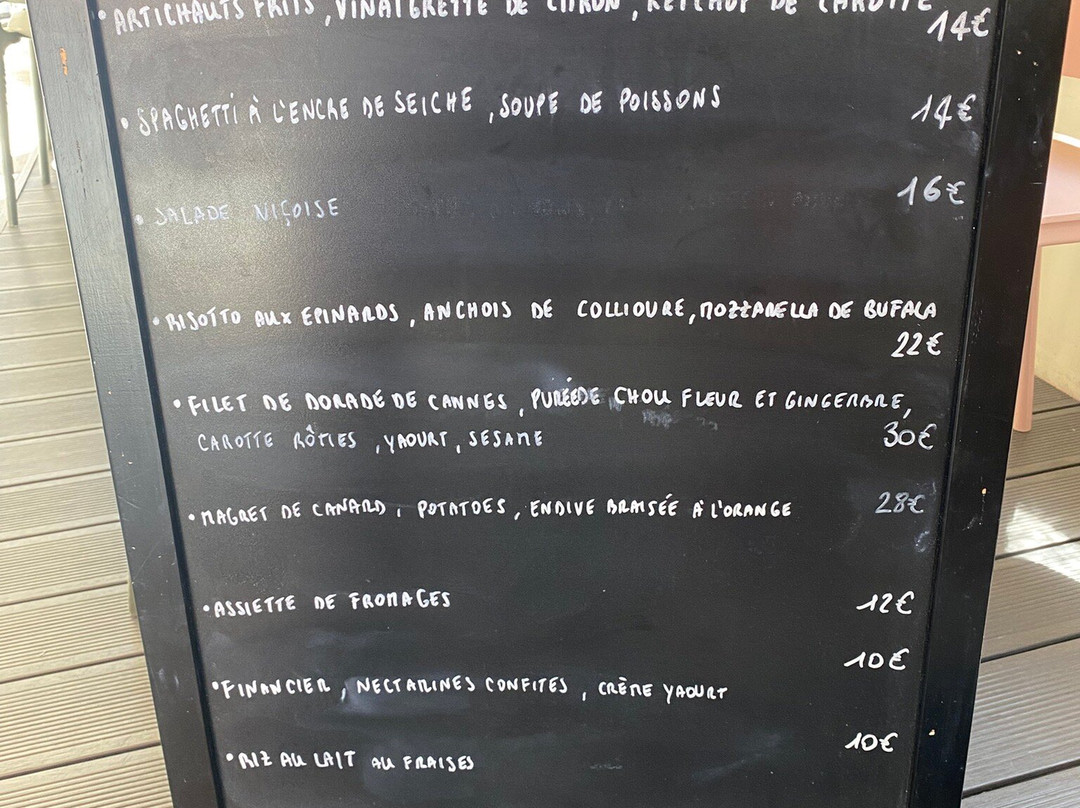 • ARTICHAUTS FRITS, VINAIGRETTE DE CITRON, KETCHUP DE CAROTTE
14€
• SPAGHETTI À L'ENCRE DE SEICHE, SOUPE DE POISSONS 14€
• SALADE NIÇOISE 16€
• RISOTTO AUX EPINARDS, ANCHOIS DE COLLIOURE, MOZZARELLA DE BUFALA
22€
• FILET DE DORADE DE CANNES, PURÉE DE CHOU FLEUR ET GINGEMBRE,
CAROTTE RÔTIES, YAOURT, SESAME 30€
• MAGRET DE CANARD, POTATOES, ENDIVE BRAISÉE À L'ORANGE 28€
• ASSIETTE DE FROMAGES 12€
10€
• FINANCIER, NECTARINES CONFITES, CRÈME YAOURT
10€
• RIZ AU LAIT AU FRAISES